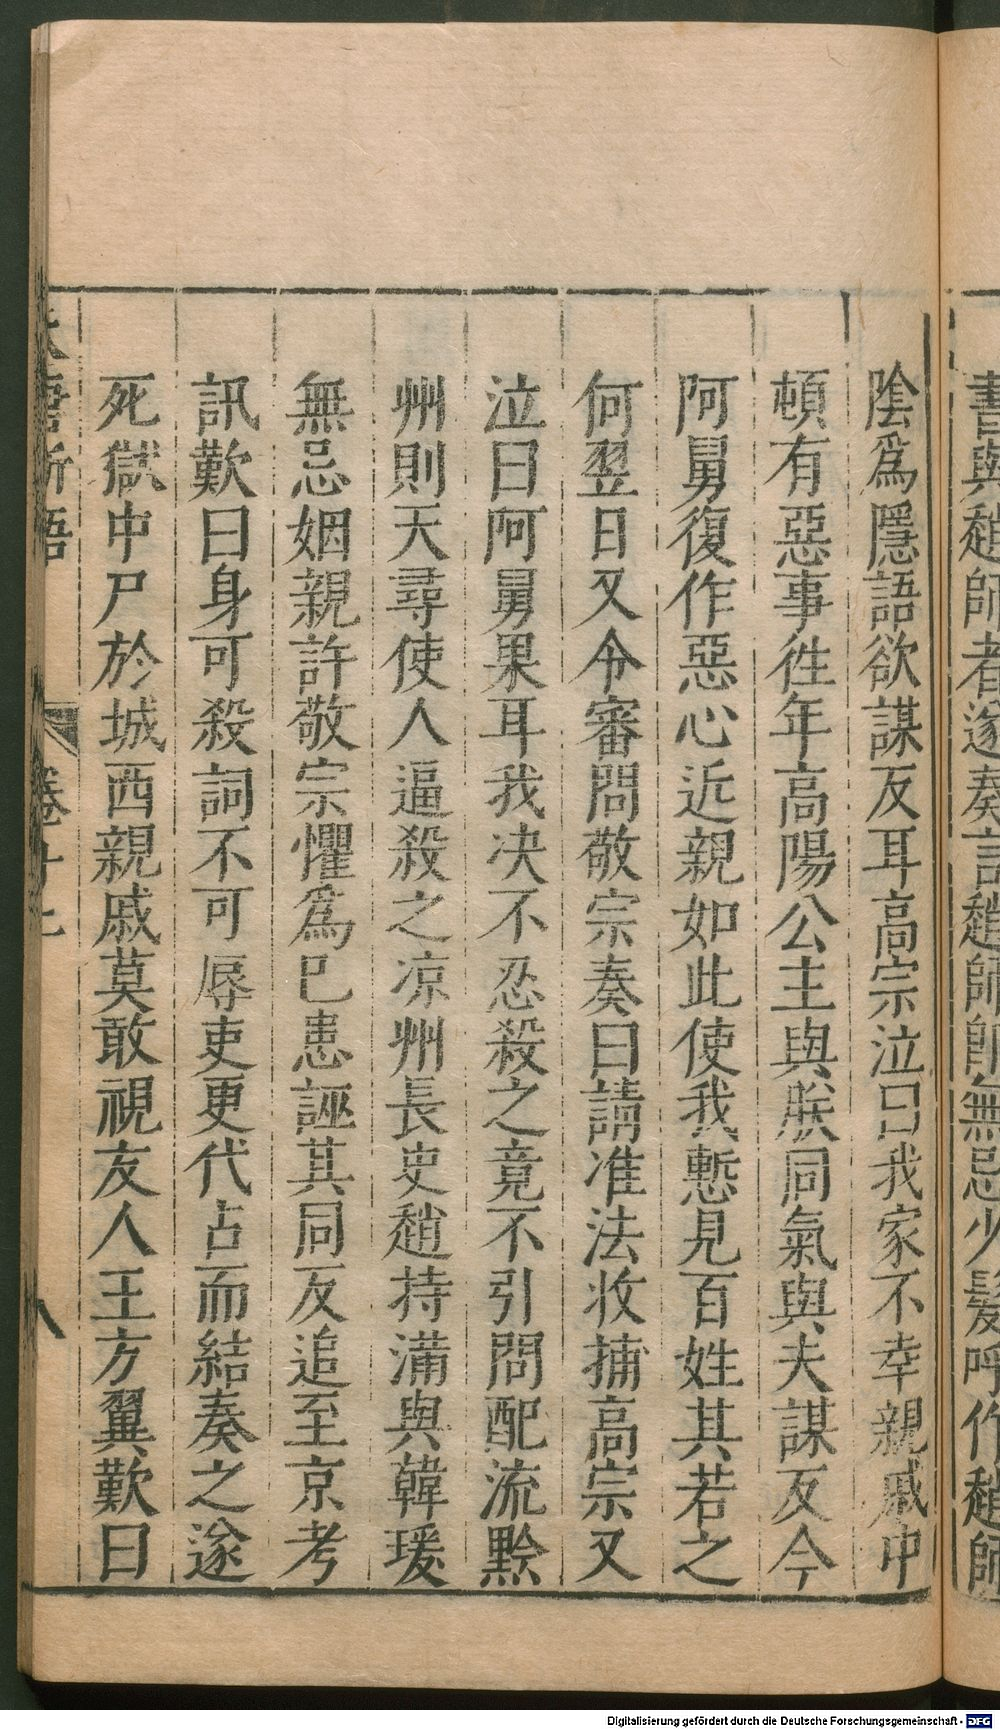 書與趙師者遂奏言趙師即無忌少髮呼作趙師
陰爲隱語欲謀反耳高宗泣曰我家不幸親戚中
頓有惡事徃年高陽公主與朕同氣與夫謀反今
阿舅復作惡心近親如此使我慙見百姓其若之
何翌日又令審問敬宗奏曰請准法收捕高宗又
泣曰阿舅果耳我决不忍殺之竟不引問配流黔
州則天尋使人逼殺之凉州長史趙持滿與韓瑗
無忌姻親許敬宗懼爲巳患誣其同反追至京考
訊歎曰身可殺詞不可辱吏更代占而結奏之遂
死獄中尸於城西親戚莫敢視友人王方翼歎曰
大唐新語
卷十二
八
Digitalisierung gefördert durch die Deutsche Forschungsgemeinschaft - DFG